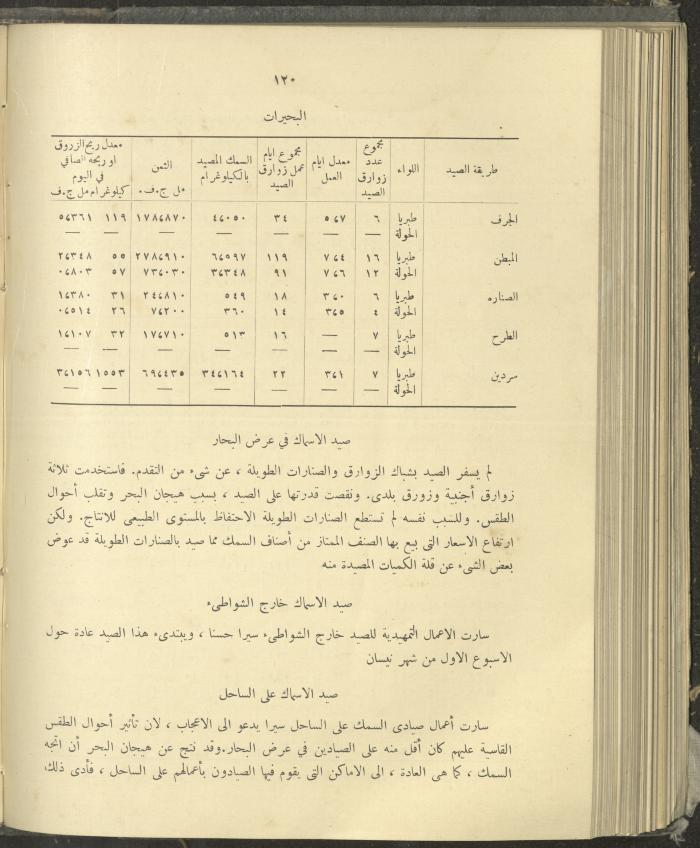 ١٢٠
البحيرات
طريقة الصيد | اللواء | مجموع عدد زوارق الصيد | معدل ايام العمل | مجموع ايام عمل زوارق الصيد | السمك المصيد بالكيلوغرام | الثمن مل ج.ف. | معدل ربح الزروق او ربحه الصافي في اليوم كيلوغرام مل ج.ف
الجرف | طبريا | ٦ | ٥٬٧ | ٣٤ | ٤٬٠٥٠ | ١٧٨٬٨٧٠ | ١١٩ | ٥٬٢٦١
الحولة | — | — | — | — | — | — | —
المبطن | طبريا | ١٦ | ٧٬٤ | ١١٩ | ٦٬٥٩٧ | ٢٧٨٬٩١٠ | ٥٥ | ٢٬٣٤٨
الحولة | ١٢ | ٧٬٦ | ٩١ | ٣٬٣٤٨ | ٧٣٬٠٣٠ | ٥٧ | ٠٬٨٠٣
الصناره | طبريا | ٦ | ٣٬٠ | ١٨ | ٥٤٩ | ٢٤٬٨١٠ | ٣١ | ١٬٣٨٠
الحولة | ٤ | ٣٬٥ | ١٤ | ٣٦٠ | ٧٬٢٠٠ | ٢٦ | ٠٬٥١٤
الطرح | طبريا | ٧ | — | ١٦ | ٥١٣ | ١٧٬٧١٠ | ٣٢ | ١٬١٠٧
الحولة | — | — | — | — | — | — | —
سردين | طبريا | ٧ | ٣٬١ | ٢٢ | ٣٤٬١٦٤ | ٦٩٬٤٣٥ | ١٥٥٣ | ٣٬١٥٦
الحولة | — | — | — | — | — | — | —
صيد الاسماك في عرض البحار
لم يسفر الصيد بشباك الزوارق والصنارات الطويلة ، عن شىء من التقدم. فاستخدمت ثلاثة
زوارق أجنبية وزورق بلدى. ونقصت قدرتها على الصيد ، بسبب هيجان البحر وتقلب أحوال
الطقس. وللسبب نفسه لم تستطع الصنارات الطويلة الاحتفاظ بالمستوى الطبيعى للانتاج. ولكن
ارتفاع الاسعار التى بيع بها الصنف الممتاز من أصناف السمك مما صيد بالصنارات الطويلة قد عوض
بعض الشىء عن قلة الكميات المصيدة منه
صيد الاسماك خارج الشواطىء
سارت الاعمال التمهيدية للصيد خارج الشواطىء سيرا حسنا ، ويبتدىء هذا الصيد عادة حول
الاسبوع الاول من شهر نيسان
صيد الاسماك على الساحل
سارت أعمال صيادى السمك على الساحل سيرا يدعو الى الاعجاب ، لان تأثير أحوال الطقس
القاسية عليهم كان أقل منه على الصيادين في عرض البحار.وقد نتج عن هيجان البحر أن اتجه
السمك ، كما هى العادة ، الى الاماكن التى يقوم فيها الصيادون بأعمالهم على الساحل ، فأدى ذلك